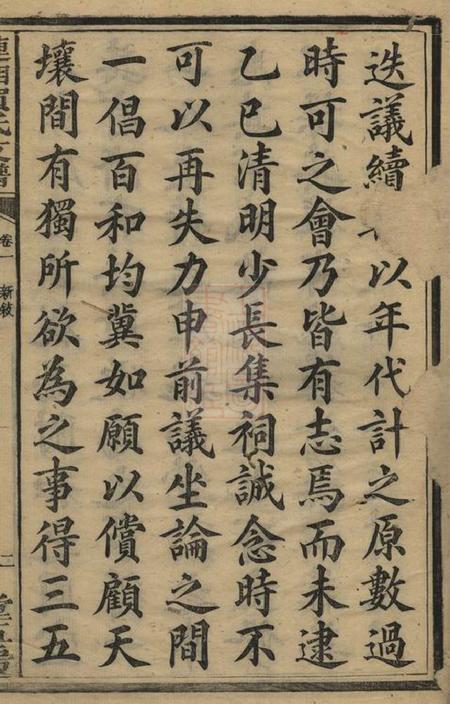 迭議續以年代計之原數過
時可之會乃皆有志焉而未逮
乙巳清明少長集祠誠念時不
可以再失力申前議坐論之間
一倡百和均冀如願以償顧天
壤間有獨所欲為之事得三五
卷一 新敘 二